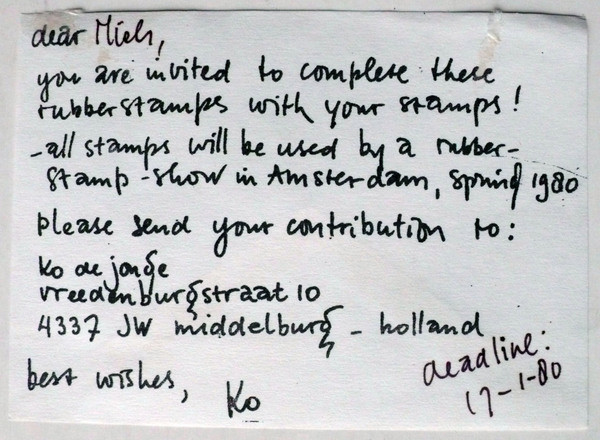 dear Miels,
you are invited to complete these
rubberstamps with your stamps!
-all stamps will be used by a rubber-
stamp-show in Amsterdam, spring 1980
please send your contribution to:
ko de jonge
vreedenburgstraat 10
4337 JW middelburg - holland
best wishes, Ko
deadline:
17-1-80